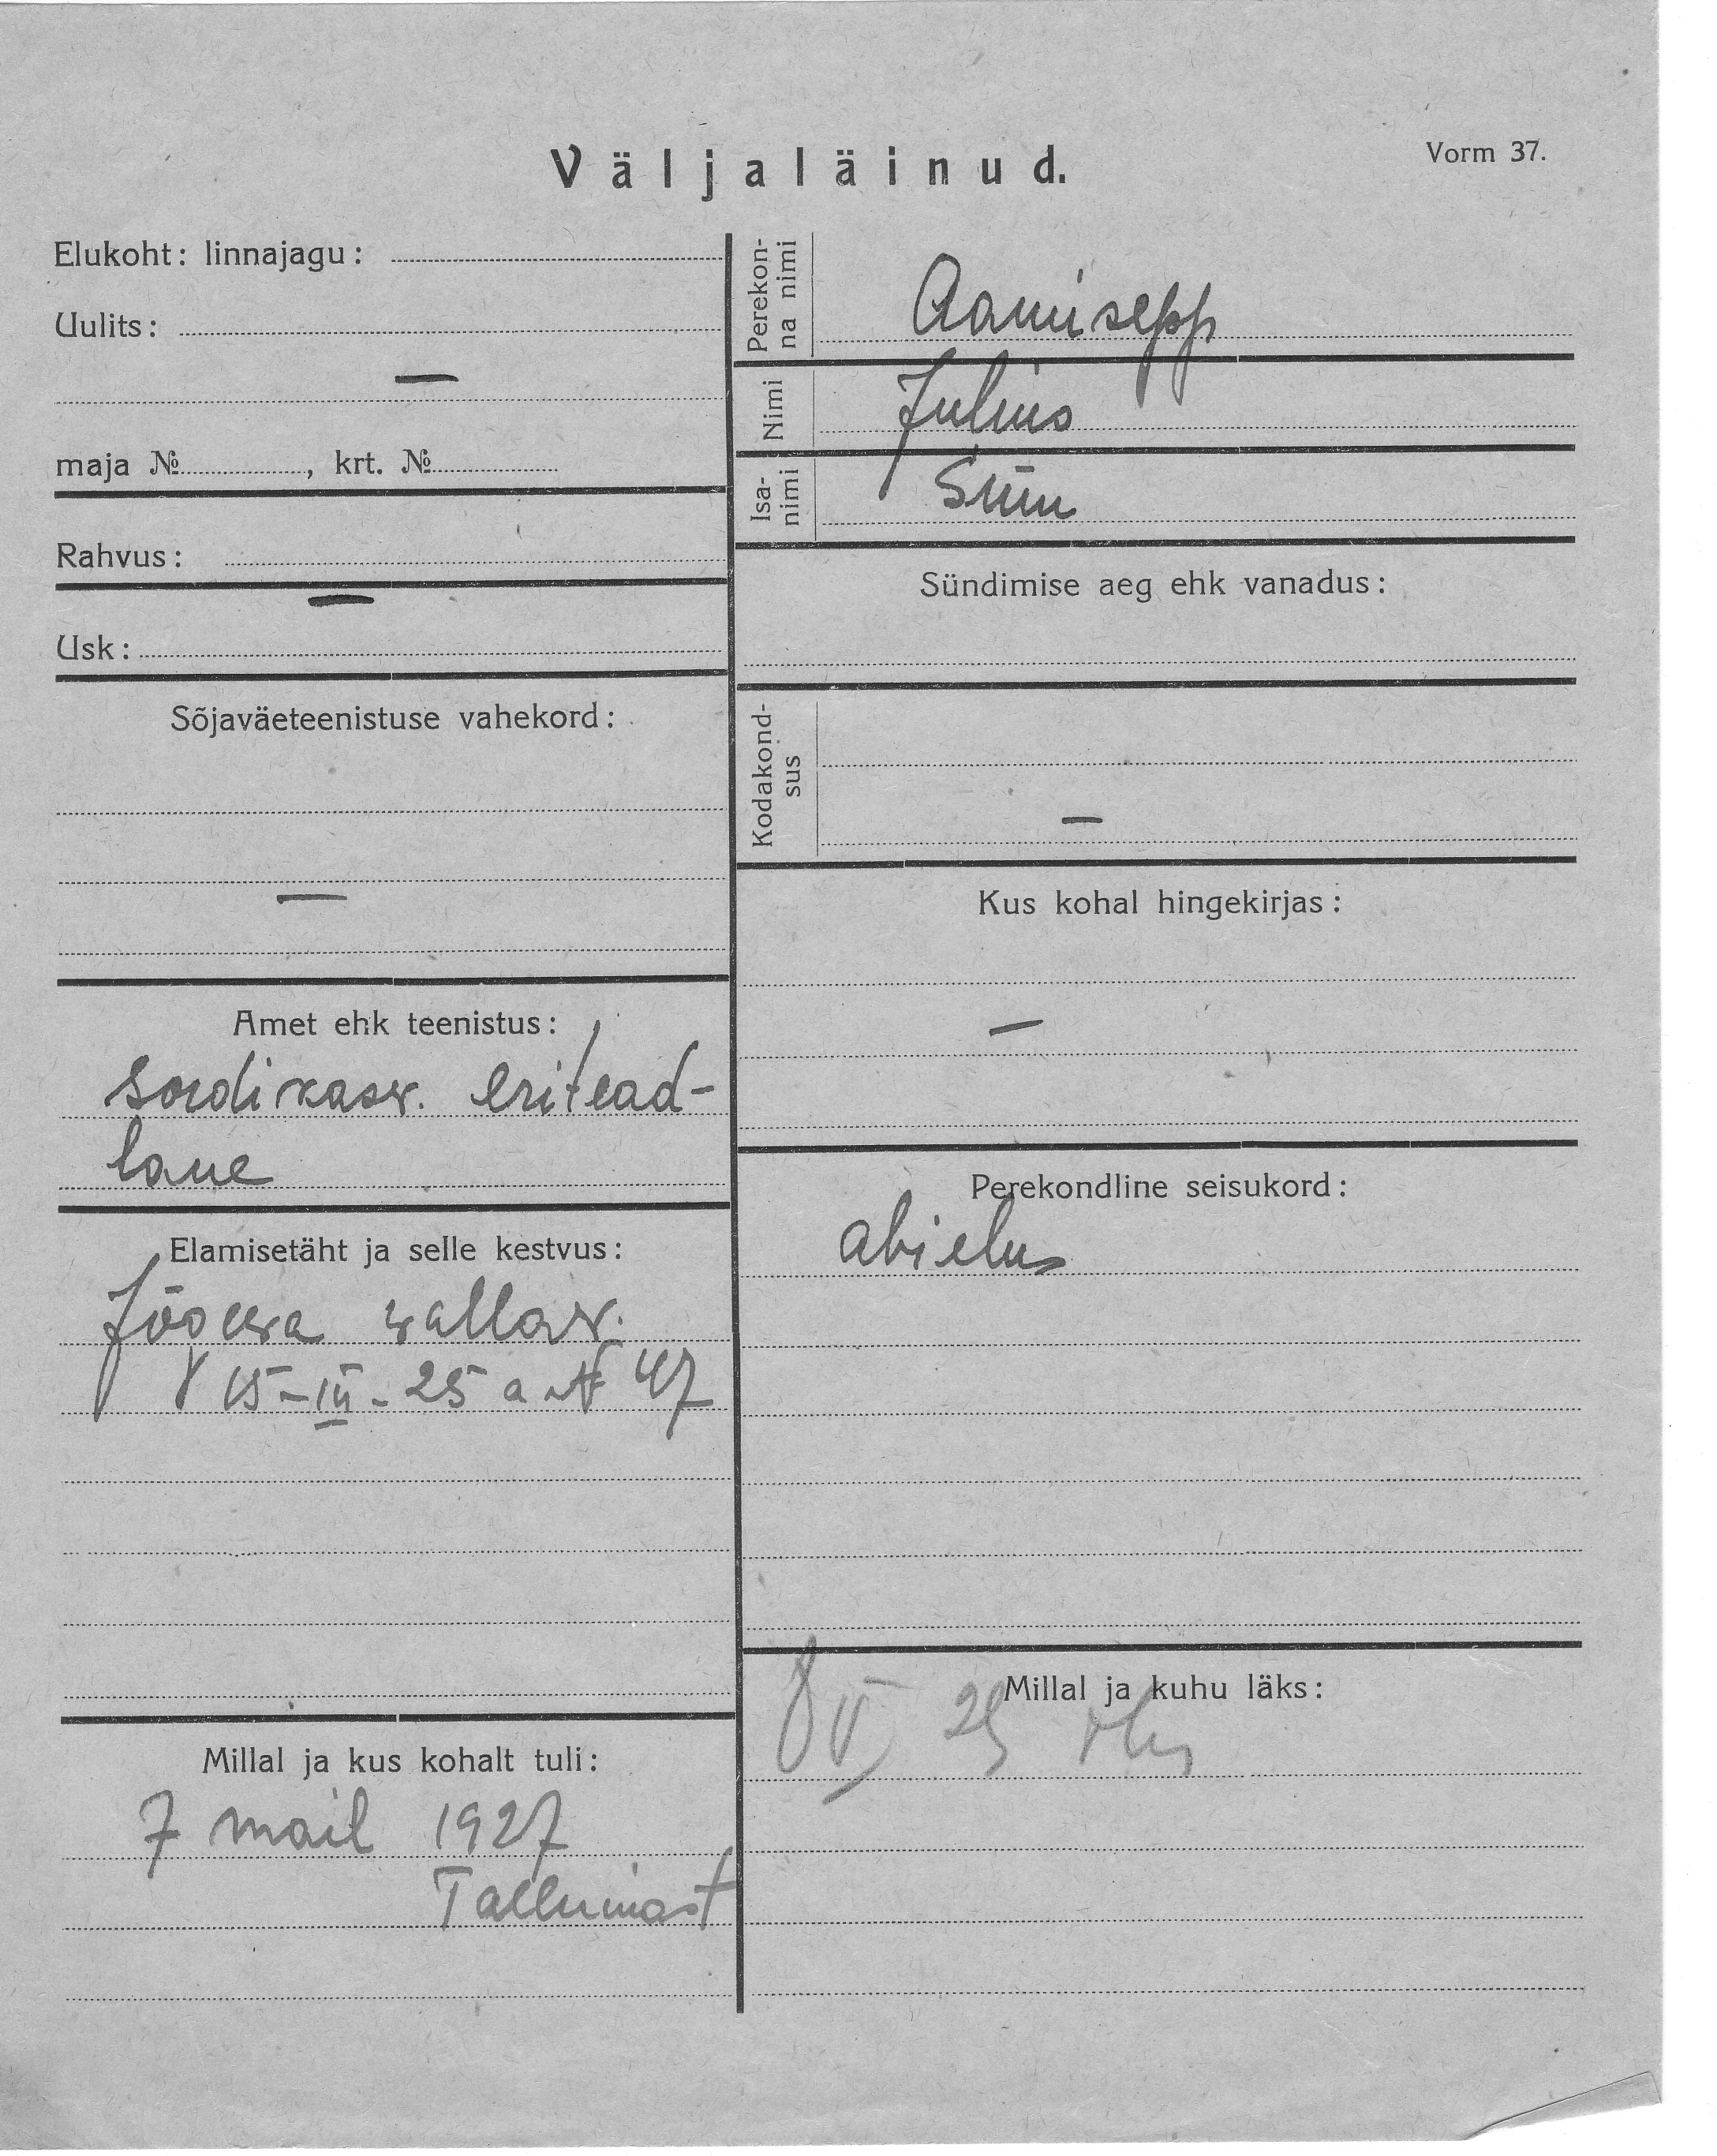 Väljaläinud.
Vorm 37.
Elukoht: linnajagu:
Uulits:
—
maja №, krt. №
Rahvus:
—
Usk:
Sõjaväeteenistuse vahekord:
—
Amet ehk teenistus:
sordikasv. eritead-
lane
Elamisetäht ja selle kestvus:
Jõgeva vallav.
15-III-25 a № 47
Millal ja kus kohalt tuli:
7 mail 1927
Tallinnast
Perekon-
na nimi
Aamisepp
Nimi
Julius
Isa-
nimi
Siim
Sündimise aeg ehk vanadus:
Kodakond-
sus
—
Kus kohal hingekirjas:
—
Perekondline seisukord:
abielus
Millal ja kuhu läks: